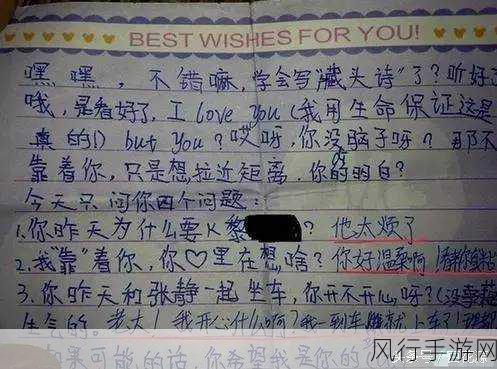 BEST WISHES FOR YOU!
嘿嘿,不错嘛,学会写"藏头诗"了?听好了
哦,是看好了,I love you(我用生命保证这是
真的!) but you?哎呀,你没脑子呀?那不
靠着你,只是想拉近距离,你的明白?
今天只问你四个问题:
1.你昨天为什么要K黎?他太烦了
2.我"靠"着你,你♡里在想啥?你好温柔啊
3.你昨天和张静一起坐车,你开不开心呀?(没
生气的。老大!我开心什么啊?我一到车
如果可能的话,你希望我是你的
风行手游网